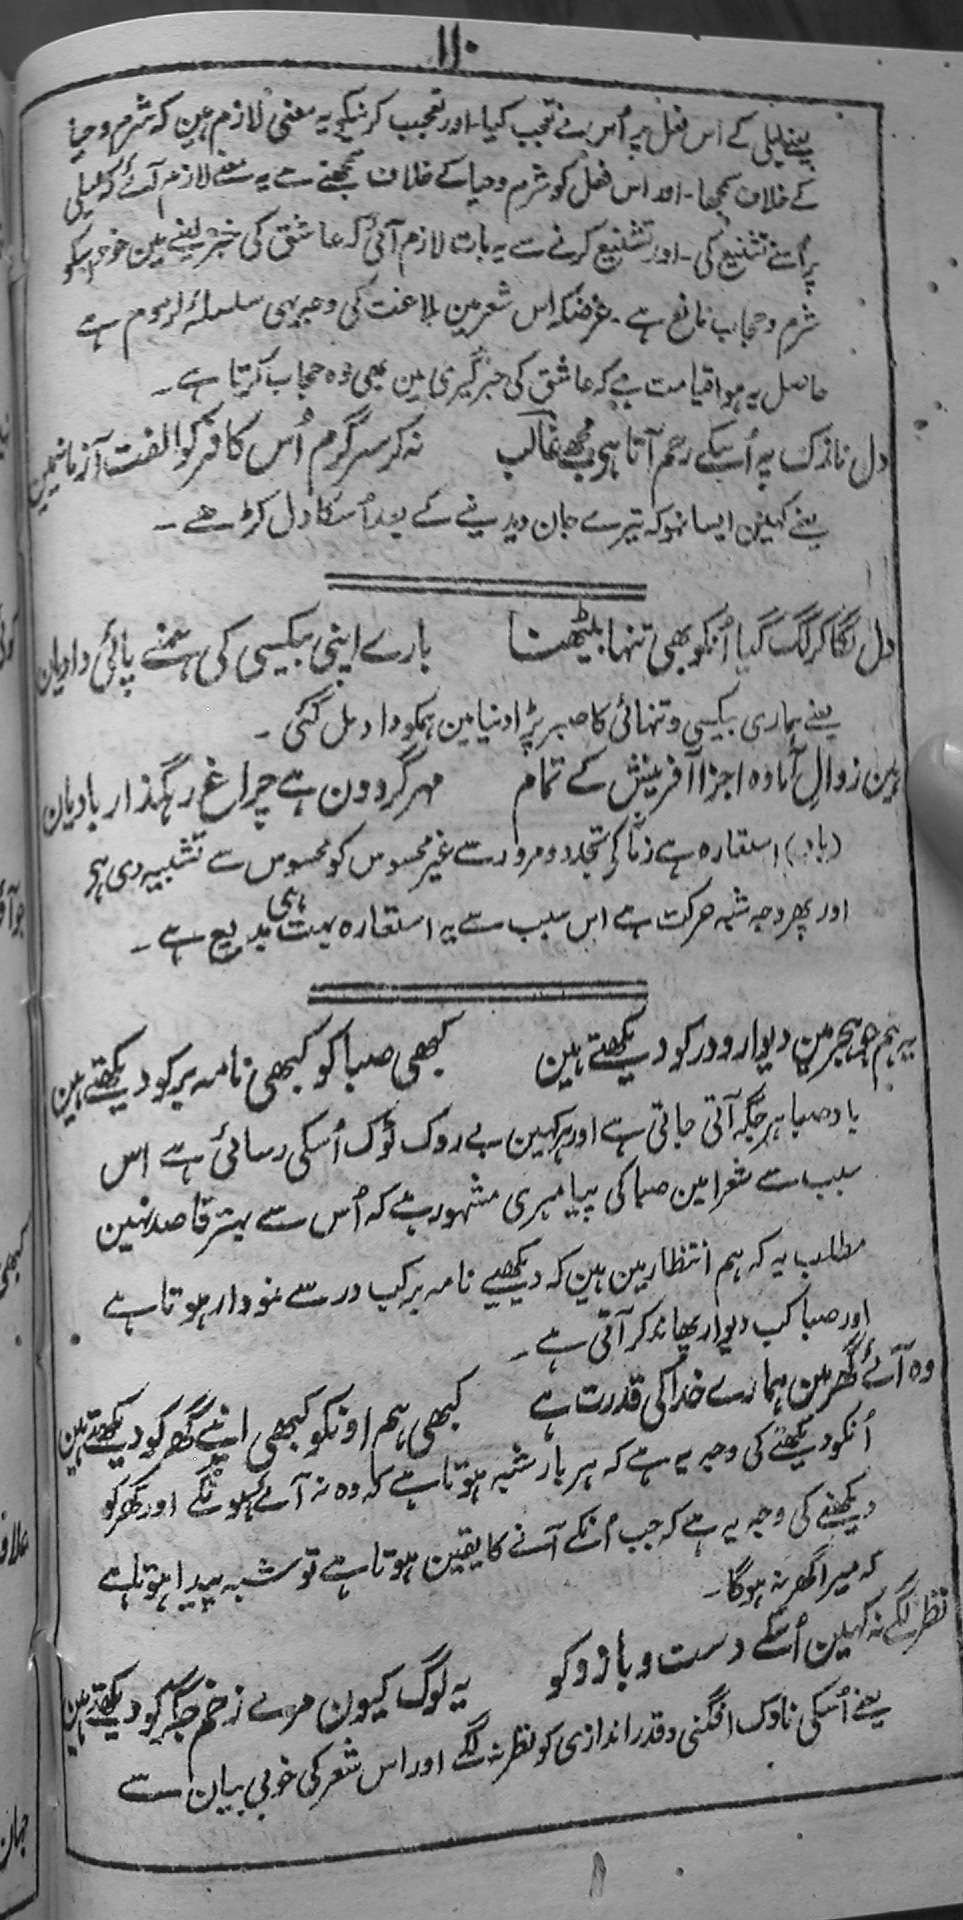 ۱۱۰
یعنے لیلی کے اس فعل پر اُس نے تعجب کیا۔ اور تعجب کرنیکے یہ معنی لازم ہین کہ شرم وحیا
کے خلاف سمجھا۔ اور اس فعل کو شرم وحیا کے خلاف سمجھنے سے یہ معنے لازم آئے کہ لیلی
پر اُسنے تشنیع کی۔ اور تشنیع کرنے سے یہ بات لازم آئی کہ عاشق کی خبر لینے مین خود اسکو
شرم و حجاب مانع ہے۔ غرضکہ اس شعر مین بلاغت کی وجہ یہی سلسلۂ لزوم ہے
حاصل یہ ہوا قیامت ہے کہ عاشق کی خبرگیری مین بھی وہ حجاب کرتا ہے۔
دل نازک پہ اُسکے رحم آتا ہی مجھے غالب نہ کر سرگرم اُس کافر کو الفت آزمانیمین
یعنے کہین ایسا نہو کہ تیرے جان دیدینے کے بعد اُسکا دل کڑھے۔
دل لگا کر لگ گیا اُنکو بھی تنہا بیٹھنا بارے اپنی بیکسی کی ہمنے پائی داد یان
یعنے ہماری بیکسی و تنہائی کا صبر پڑا دنیا مین ہمکو داد مل گئی۔
ہین زوال آمادہ اجزا آفرینش کے تمام مہر گردون ہے چراغ رہگذار باد یان
(باد) استعارہ ہے زمانہ کی تجدد و مرور سے غیر محسوس کو محسوس سے تشبیہ دی ہی
اور پھر وجہ شبہ حرکت ہے اس سبب سے یہ استعارہ بہت ہی بدیع ہے۔
یہ ہم جو ہجر مین دیوار و در کو دیکھتے ہین کبھی صبا کو کبھی نامہ بر کو دیکھتے ہین
باد صبا ہر جگہ آتی جاتی ہے اور ہر کہین بے روک ٹوک اُسکی رسائی ہے اس
سبب سے شعرا مین صبا کی پیامبری مشہور ہے کہ اُس سے بہتر قاصد نہین
مطلب یہ کہ ہم انتظار مین ہین کہ دیکھیے نامہ بر کب در سے نمودار ہوتا ہے
اور صبا کب دیوار پھاند کر آتی ہے۔
وہ آئے گھر مین ہمارے خدا کی قدرت ہے کبھی ہم اونکو کبھی اپنے گھر کو دیکھتے ہین
اُنکو دیکھنے کی وجہ یہ ہے کہ ہر بار شبہ ہوتا ہے کہ وہ نہ آئے ہونگے اور گھر کو
دیکھنے کی وجہ یہ ہے کہ جب اُنکے آنے کا یقین ہوتا ہے تو شبہ پیدا ہوتا ہے
کہ میرا گھر نہ ہوگا۔
نظر لگے نہ کہین اُسکے دست و بازو کو یہ لوگ کیون مرے زخم جگر کو دیکھتے ہین
یعنے اُسکی ناوک افگنی و قدر اندازی کو نظر نہ لگے اور اس شعر کی خوبی بیان سے